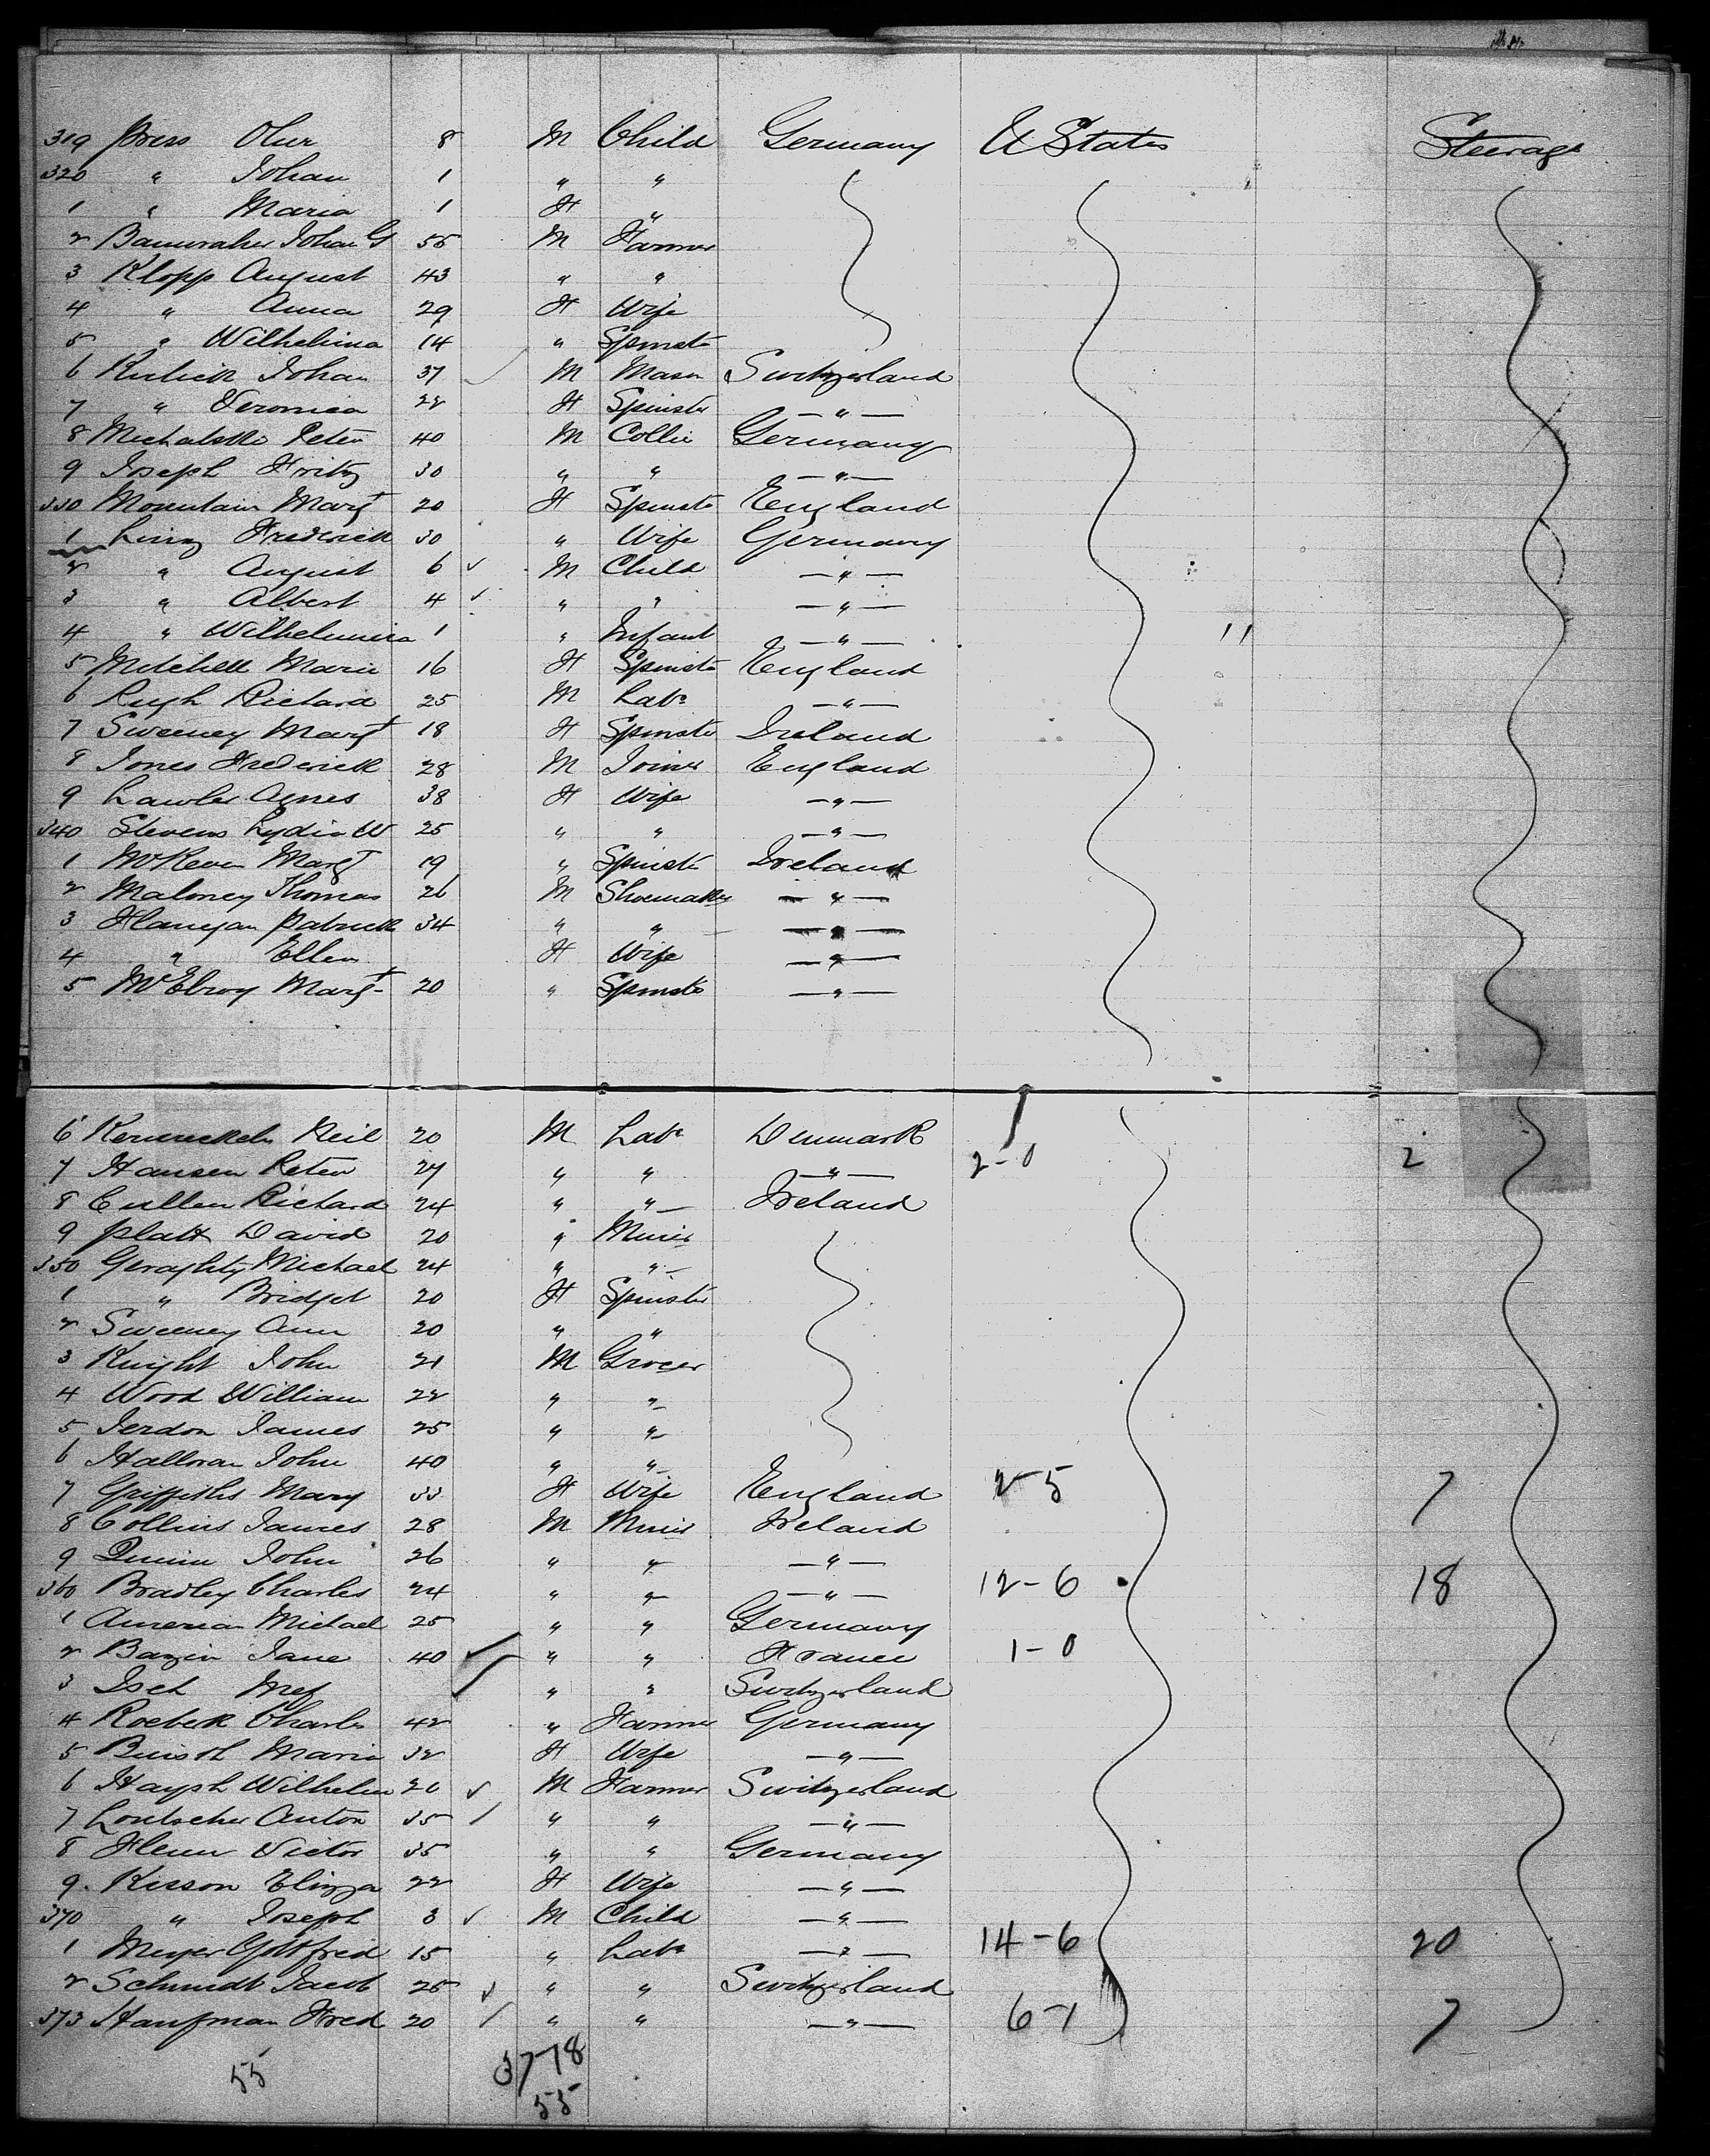 319 Press Oliver 8 M Child Germany U States Steerage
320 " Johan 1 " "
1 " Maria 1 F "
2 Johan G 55 M Farmer
3 Klopp August 43 " "
4 " Anna 29 F Wife
5 " Wilhelmina 14 " Spinstr
6 Johan 37 M Mason Switzerland
7 " Veronica 22 F Spinster — " —
8 Michalski Peter 40 M Collie Germany
9 Joseph Fritz 30 " " — " —
330 Mountain Margt 20 F Spinstr England
1 Frederick 30 " Wife Germany
2 " August 6 M Child — " —
3 " Albert 4 " " — " —
4 " Wilhelmina 1 " Infant — " — 11
5 Mitchell Marie 16 F Spinstr England
6 Richard 25 M Labr — " —
7 Sweeney Margt 18 F Spinstr Ireland
8 Jones Frederick 28 M Joiner England
9 Lawler Agnes 38 F Wife — " —
340 Stevens Lydia W 25 " " — " —
1 McKeven Margt 19 " Spinstr Ireland
2 Maloney Thomas 26 M Shoemaker — " —
3 Flanegan Patrick 34 " " — " —
4 " Ellen F Wife — " —
5 McElroy Margt 20 " Spinstr — " —
6 Neil 20 M Labr Denmark
7 Hansen Peter 27 " " — " — 2-0 2
8 Cullen Richard 24 " " Ireland
9 Platt David 20 " Miner
350 Geraghty Michael 24 " "
1 " Bridget 20 F Spinster
2 Sweeney Ann 20 " "
3 Knight John 21 M Grocer
4 Wood William 22 " "
5 Jerdon James 25 " "
6 Halloran John 40 " "
7 Griffiths Mary 33 F Wife England 2-5 7
8 Collins James 28 M Miner Ireland
9 Quinn John 26 " " — " —
360 Bradley Charles 24 " " — " — 12-6 18
1 Michael 25 " " Germany
2 Bazin Jane 40 " " France 1-0
3 Isch " " Switzerland
4 Roebeck Charles 42 " Farmer Germany
5 Maria 32 F Wife — " —
6 Wilhelm 20 M Farmer Switzerland
7 Loutscher Anton 35 " " — " —
8 Victor 35 " " Germany
9 Kisson Elizza 22 F Wife — " —
370 " Joseph 3 M Child — " —
1 Meyer Gottfried 15 " Labr — " — 14-6 20
2 Schmidt Jacob 25 " " Switzerland
373 Haufman Fred 20 " " — " — 6-1 7
55 37-18
55